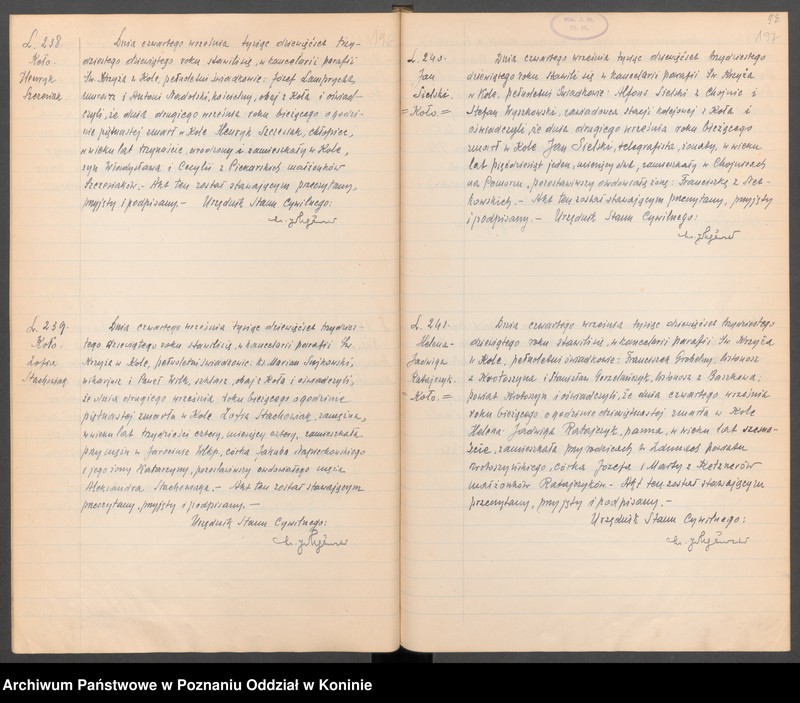 L. 238.
Koło.
Henryk
Szczesiak
Dnia czwartego września tysiąc dziewięćset trzy-
dziestego dziewiątego roku stawili się, w kancelarii parafii
Św. Krzyża w Kole, pełnoletni świadkowie: Józef
murarz i Antoni Nadolski, kościelny, obaj z Koła i oświad-
czyli, że dnia drugiego września roku bieżącego o godzi-
nie piętnastej zmarł w Kole Henryk Szczesiak, chłopiec,
w wieku lat trzynaście, urodzony i zamieszkały w Kole,
syn Władysława i Cecylii z Piekarskich małżonków
Szczesiaków. – Akt ten został stawającym przeczytany,
przyjęty i podpisany. – Urzędnik Stanu Cywilnego:
L. 239.
Koło.
Zofia
Stachowiak
Dnia czwartego września tysiąc dziewięćset trzydzies-
tego dziewiątego roku stawili się, w kancelarii parafii Św.
Krzyża w Kole, pełnoletni świadkowie: ks. Marian
wikariusz i Paweł Wilk, szklarz, obaj z Koła i oświadczyli,
że dnia drugiego września roku bieżącego o godzinie
piętnastej zmarła w Kole Zofia Stachowiak, zamężna,
w wieku lat trzydzieści cztery, miesięcy cztery, zamieszkała
przy mężu w Jarocinie Wlkp., córka Jakuba
i jego żony Katarzyny, pozostawiwszy owdowiałego męża
Aleksandra Stachowiaka. – Akt ten został stawającym
przeczytany, przyjęty i podpisany. –
Urzędnik Stanu Cywilnego:
98
197
L. 240.
Jan
Sielski.
= Koło. =
Dnia czwartego września tysiąc dziewięćset trzydziestego
dziewiątego roku stawili się w kancelarii parafii Św. Krzyża
w Kole, pełnoletni świadkowie: Alfons Sielski z Chojnic i
Stefan Wyszkowski, zawiadowca stacji kolejowej z Koła i
oświadczyli, że dnia drugiego września roku bieżącego
zmarł w Kole Jan Sielski, telegrafista, żonaty, w wieku
lat pięćdziesiąt jeden, miesięcy dwa, zamieszkały w Chojnicach
na Pomorzu, pozostawiwszy owdowiałą żonę: Franciszkę z
kowskich. – Akt ten został stawającym przeczytany, przyjęty
i podpisany. – Urzędnik Stanu Cywilnego:
L. 241.
Helena-
Jadwiga
Ratajczyk.
= Koło. =
Dnia czwartego września tysiąc dziewięćset trzydziestego
dziewiątego roku stawili się, w kancelarii parafii Św. Krzyża
w Kole, pełnoletni świadkowie: Franciszek Grobelny, listonosz
z Krotoszyna i Stanisław Gorzelańczyk, listonosz z Baszkowa,
powiat Krotoszyn i oświadczyli, że dnia czwartego września
roku bieżącego o godzinie dziewiętnastej zmarła w Kole
Helena Jadwiga Ratajczyk, panna, w wieku lat szesna-
ście, zamieszkała przy rodzicach w Zdunach powiatu
krotoszyńskiego, córka Józefa i Marty z
małżonków Ratajczyków. – Akt ten został stawającym
przeczytany, przyjęty i podpisany. –
Urzędnik Stanu Cywilnego:
Archiwum Państwowe w Poznaniu Oddział w Koninie